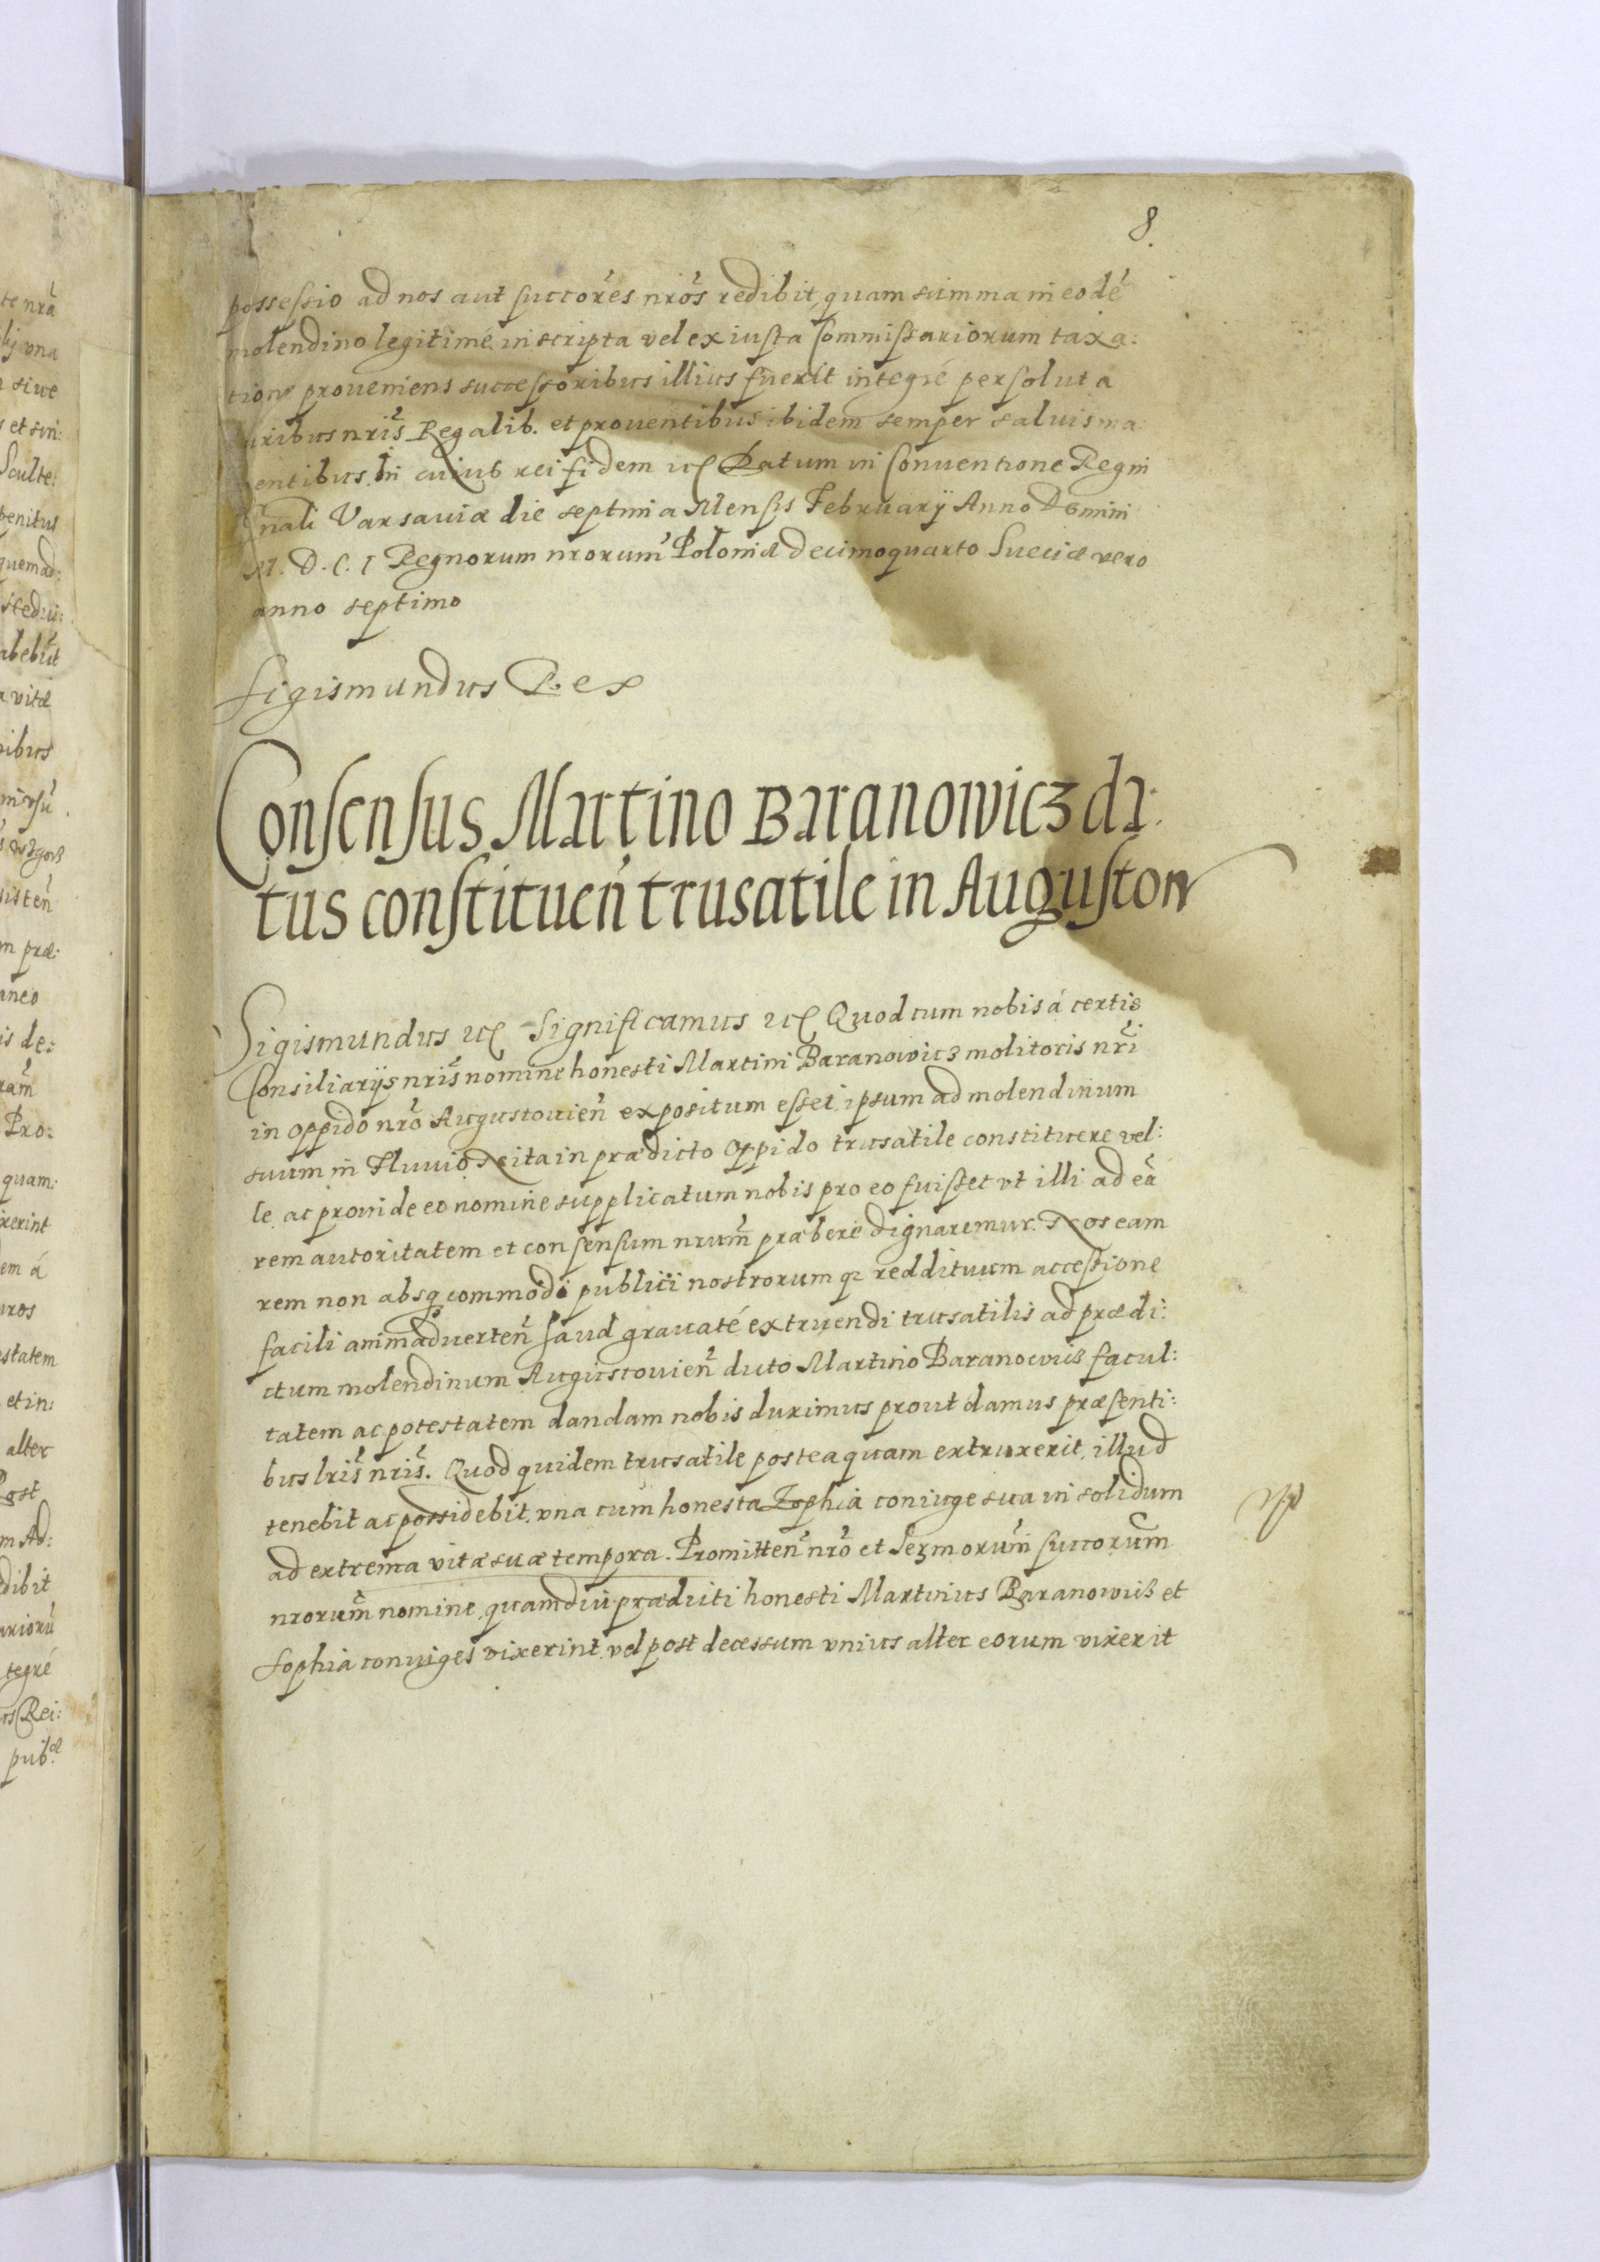 8.
possessio ad nos aut succores nros redibit, quam summa in eodē
molendino legitimé inscripta vel ex iusta Commissariorum taxa:
tione proueniens successoribus illius fuerit integré persoluta
iuribus nris Regalib. et prouentibus ibidem semper saluis ma
nentibus. In cuius rei fidem etc Datum in Conuentione Regni
gnali Varsauiæ die septima Mensis February Anno Domini
M. D. C. I Regnorum nrorum Poloniæ decimoquarto Sueciæ vero
anno septimo
Sigismundus Rex
Consensus Martino Baranowicz da:
tus constituen trusatile in Auguston
Sigismundus etc Significamus etc Quod cum nobis á certis
Consiliarijs nris nomine honesti Martini Baranowicz molitoris nri
in oppido nro Augustouien expositum esset, ipsum ad molendinum
suum in Fluuio Neita in prædicto oppido trusatile constituere vel:
le, ac proinde eo nomine supplicatum nobis pro eo fuisset vt illi ad eā
rem autoritatem et consensum nrum præbere dignaremur. Nos eam
rem non absq commodi publici nostrorum q reddituum accessione
facili animaduerten haud grauaté extruendi trusatilis ad prædi:
ctum molendinum Augustouien dicto Martino Baranowiß facul:
tatem ac potestatem dandam nobis duximus prout damus præsenti:
bus lris nris. Quod quidem trusatile posteaquam extruxerit, illud
tenebit ac possidebit, vna cum honesta Zophia coniuge sua in solidum
ad extrema vitæ suæ tempora. Promitten nro et Sermorum succorum
nrorum nomine, quamdiu prædicti honesti Martinus Baranowiß et
Sophia coniuges vixerint, vel post decessum vnius alter eorum vixerit